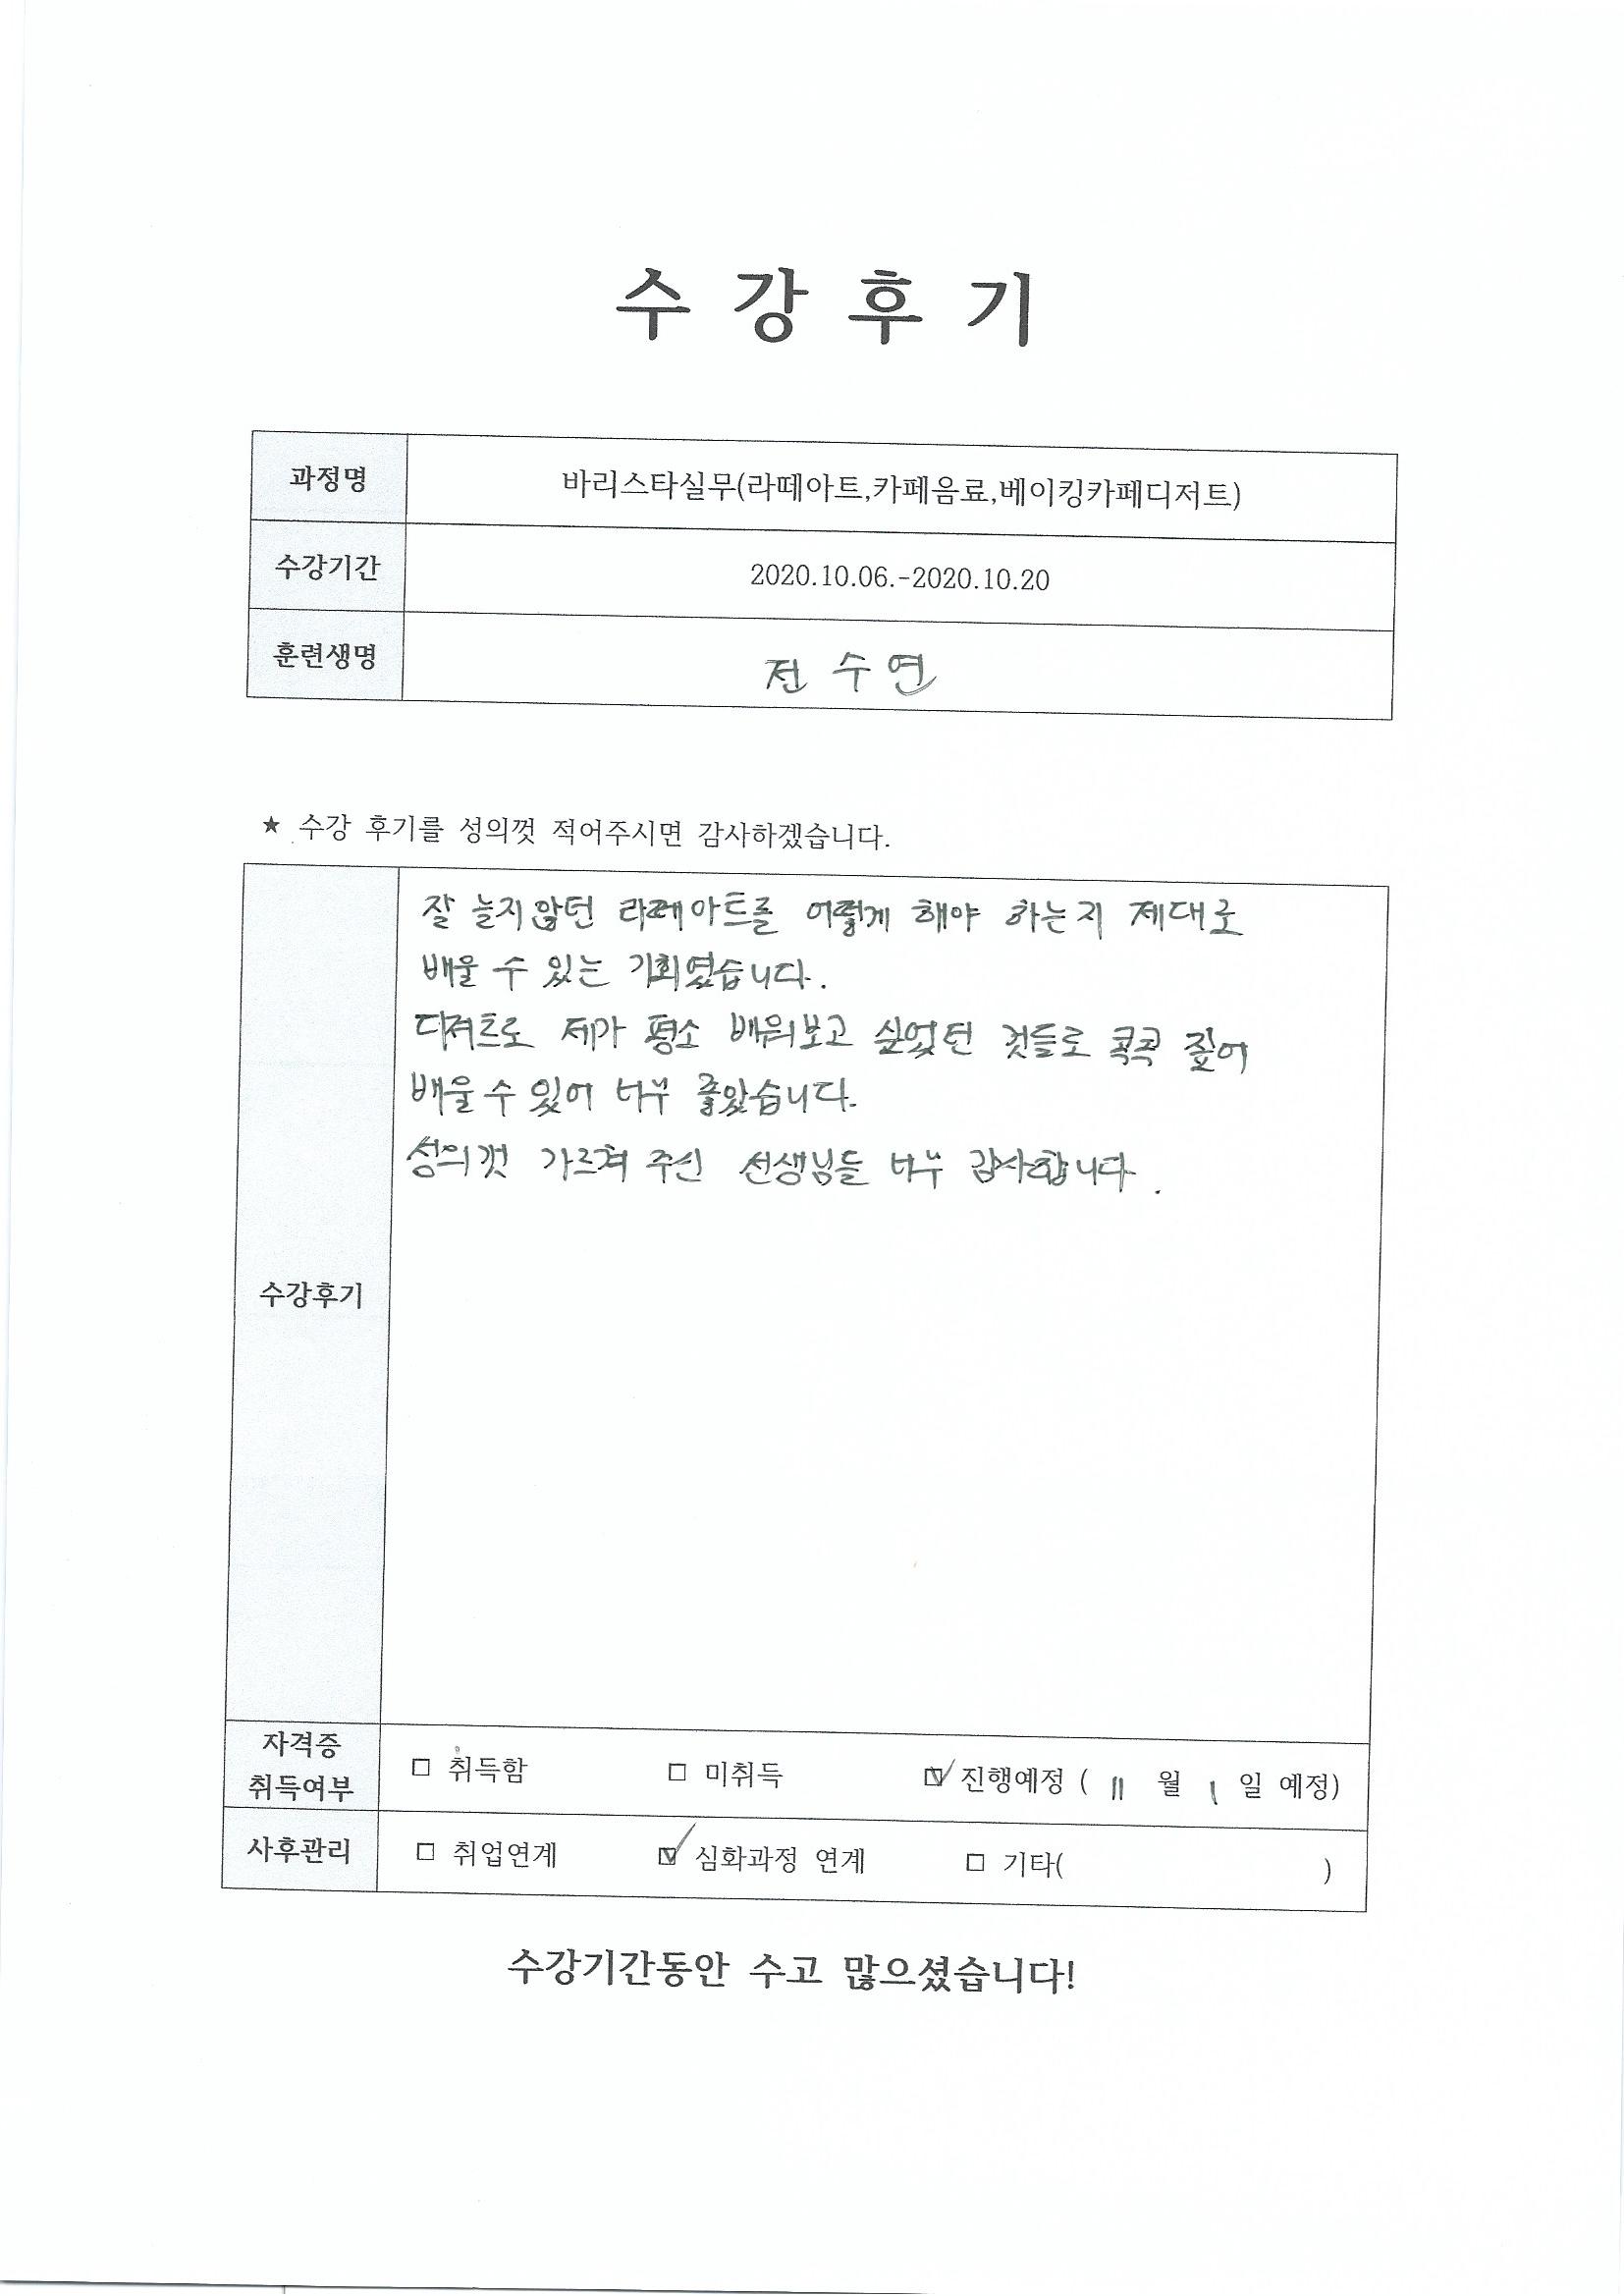 수 강 후 기
과정명 바리스타실무(라떼아트,카페음료,베이킹카페디저트)
수강기간 2020.10.06.-2020.10.20
훈련생명 전수연
★ 수강 후기를 성의껏 적어주시면 감사하겠습니다.
잘 늘지않던 라떼아트를 어떻게 해야 하는지 제대로
배울 수 있는 기회였습니다.
디저트로 제가 평소 배워보고 싶었던 것들로 콕콕 짚어
배울 수 있어 너무 좋았습니다.
성의껏 가르쳐 주신 선생님들 너무 감사합니다.
수강후기
자격증
취득여부 □ 취득함 □ 미취득 ☑ 진행예정 ( 11 월 1 일 예정)
사후관리 □ 취업연계 ☑ 심화과정 연계 □ 기타( )
수강기간동안 수고 많으셨습니다!